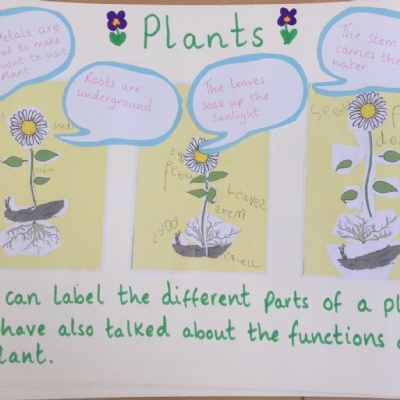 Plants
Petals are
to make
want to visit
plant
Roots are
underground.
The leaves
soak up the
sunlight
The stem
carries the
water
Seed
stem
Leaves
stem
can label the different parts of a pl
have also talked about the functions o
lant.